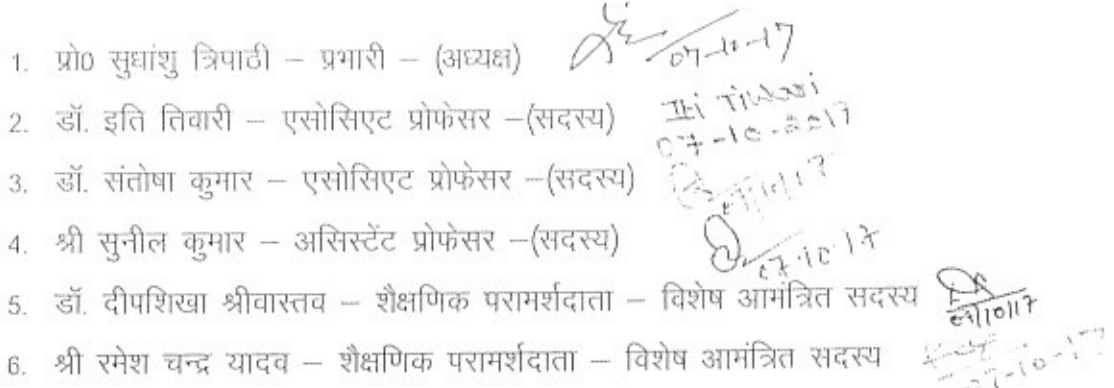 1. प्रो0 सुधांशु त्रिपाठी – प्रभारी – (अध्यक्ष) 07-10-17
2. डॉ. इति तिवारी – एसोसिएट प्रोफेसर –(सदस्य) Iti Tiwari
07-10-2017
3. डॉ. संतोषा कुमार – एसोसिएट प्रोफेसर –(सदस्य)
4. श्री सुनील कुमार – असिस्टेंट प्रोफेसर –(सदस्य) 07.10.17
5. डॉ. दीपशिखा श्रीवास्तव – शैक्षणिक परामर्शदाता – विशेष आमंत्रित सदस्य 07/10/17
6. श्री रमेश चन्द्र यादव – शैक्षणिक परामर्शदाता – विशेष आमंत्रित सदस्य 07-10-17